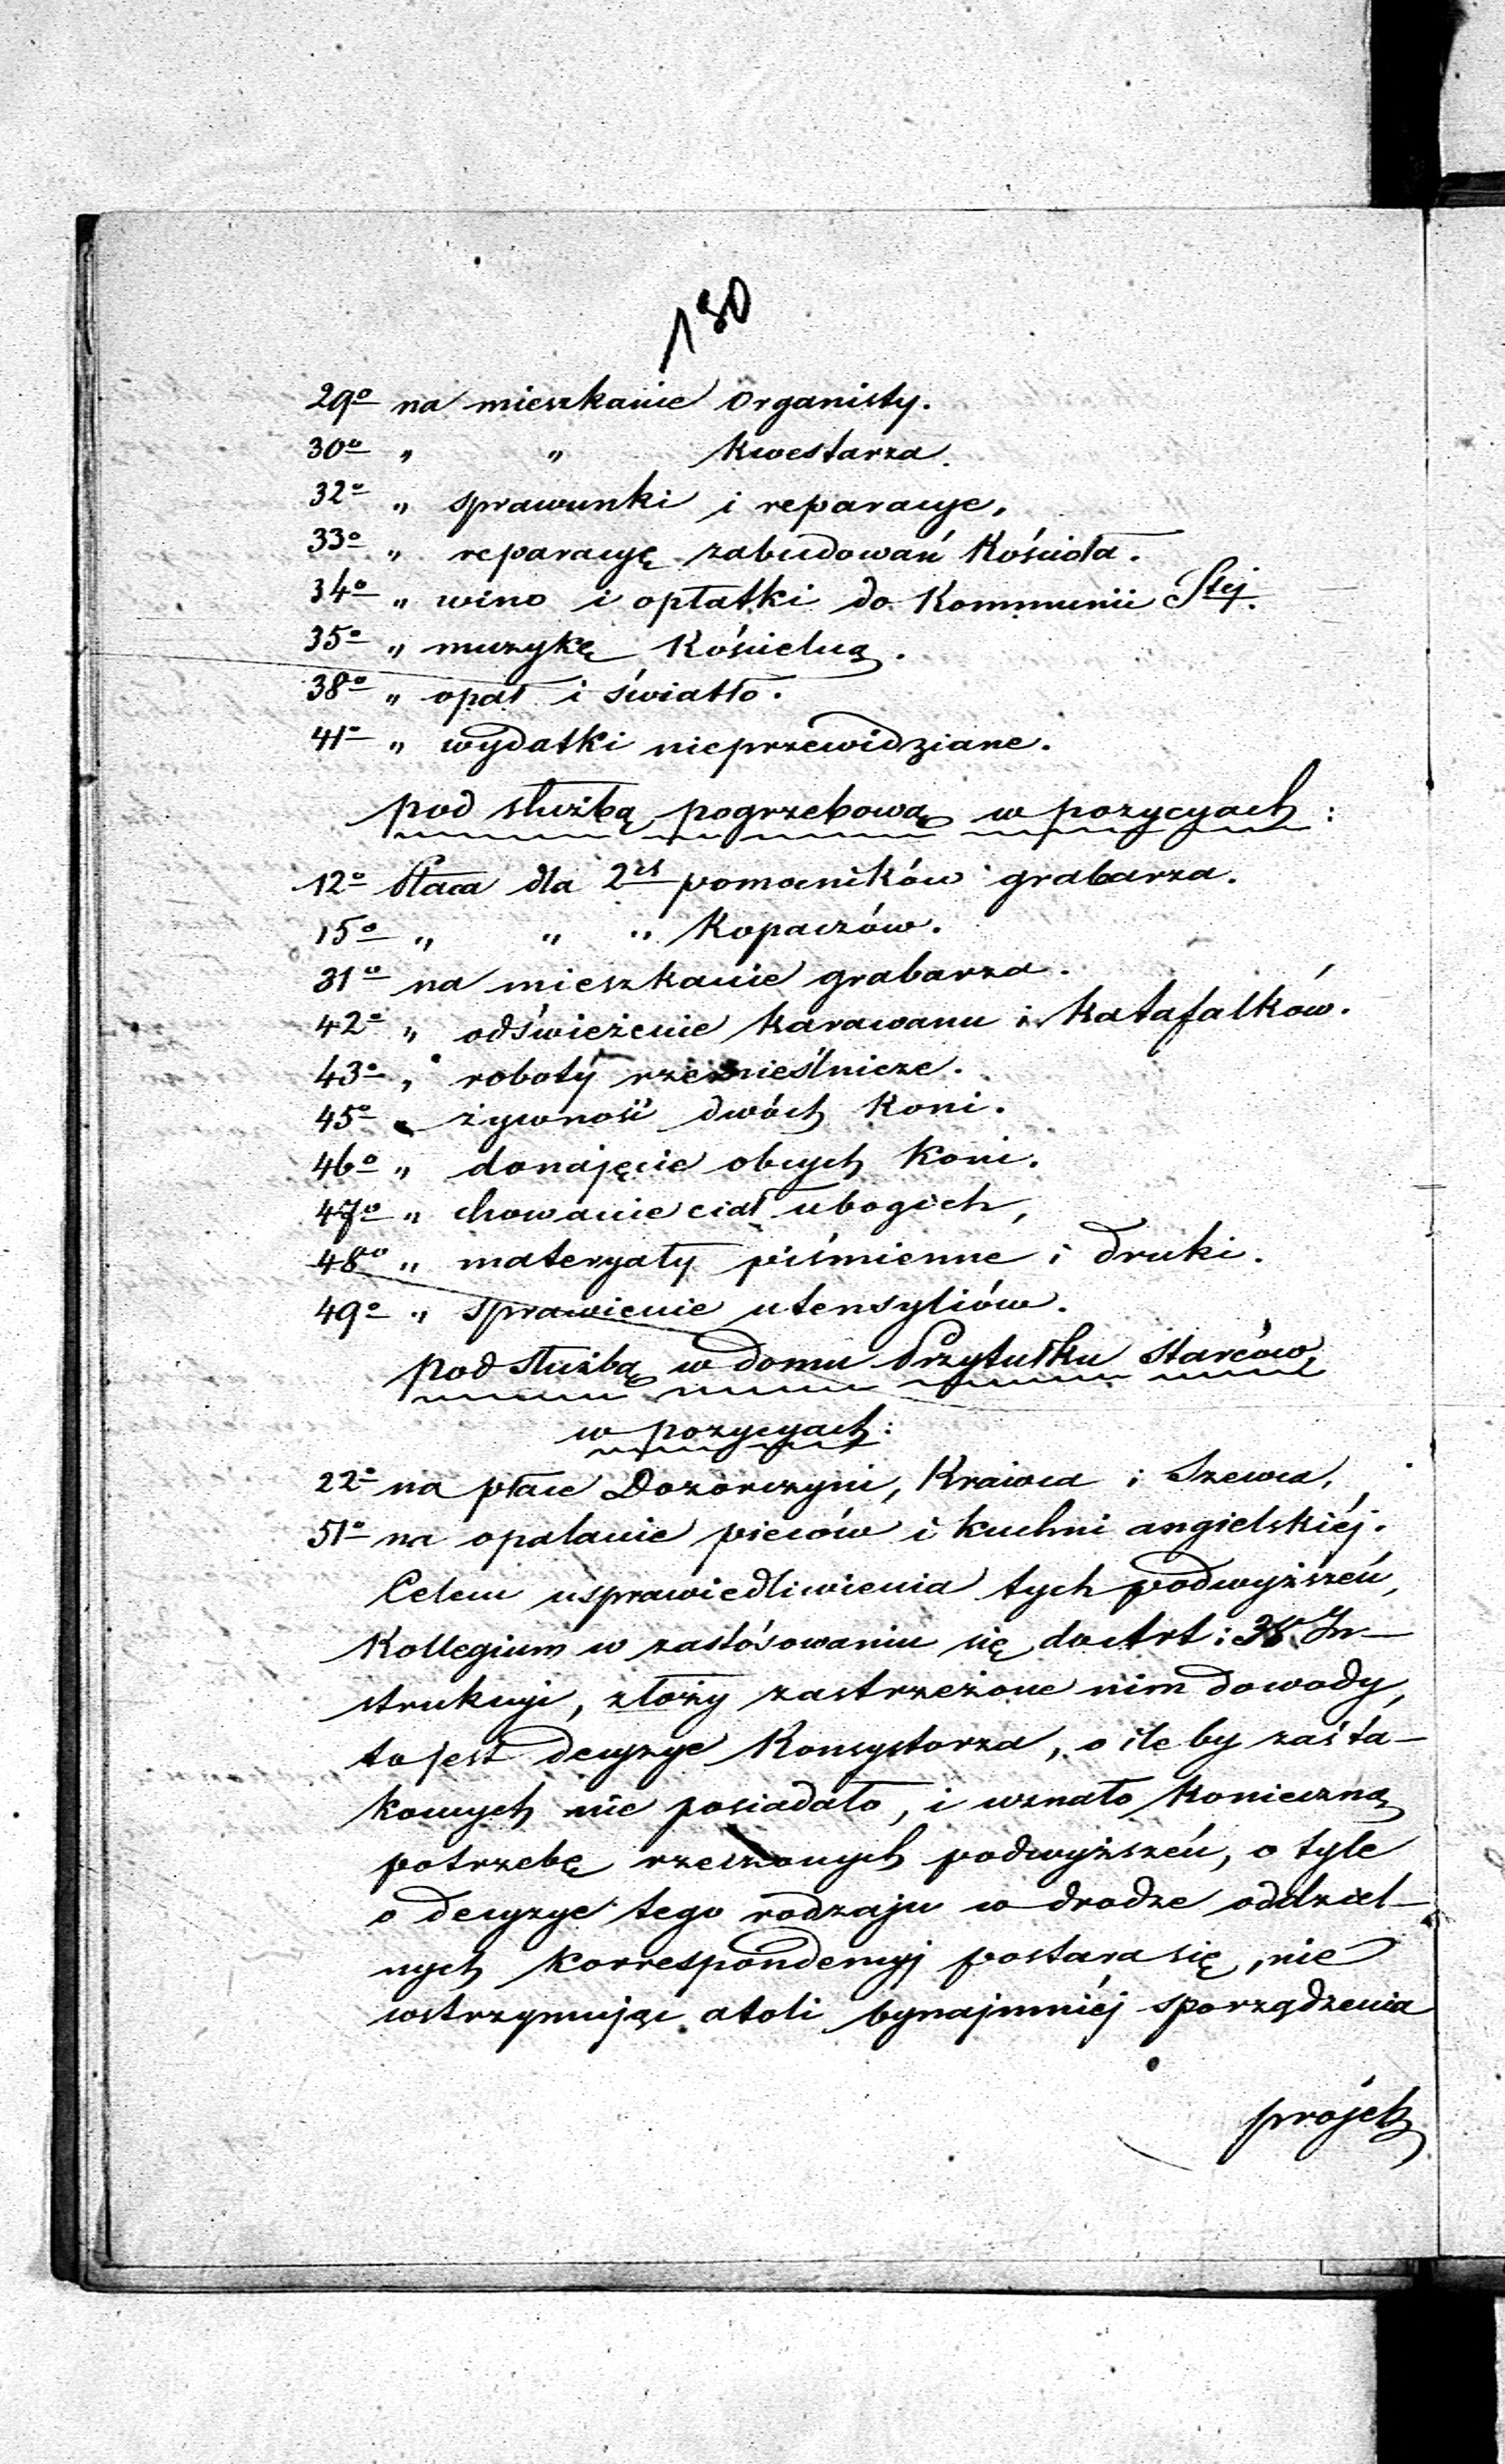 130
29o na mieszkanie Organisty.
30o " " Kwestarza.
32o " sprawunki i reparacye.
33o " reparacyę zabudowań Kościoła.
34o " wino i opłatki do Kommunii Stej.
35o " muzykę Kościelną.
38o " opał i światło.
41o " wydatki nieprzewidziane.
pod służbą pogrzebową w pozycyach:
12o Płaca dla 2ch pomocników grabarza.
15o " " " Kopaczów.
31o na mieszkanie grabarza.
42o " odświeżenie Karawanu i Katafalków.
43o " roboty rzemieślnicze.
45o " żywność dwóch Koni.
46o " donajęcie obcych Koni.
47o " chowanie ciał ubogich,
48o " materyały piśmienne i druki.
49o " sprawienie utensyliów.
pod służbą w domu Przytułku Starców,
w pozycyach:
22o na płace Dozorczyni, Krawca i Szewca,
51o na opalanie pieców i kuchni angielskiéj.
Celem usprawiedliwienia tych podwyższeń,
Kollegium w zastósowaniu się do Art: In-
strukcyi, złoży zastrzeżone nim dowody,
to jest decyzye Konsystorza, o ile by zaś ta-
kowych nie posiadało, i uznało Konieczną
potrzebę rzeczonych podwyższeń, o tyle
o decyzye tego rodzaju w drodze oddziel-
nych Korrespondencyj postara się, nie
wstrzymując atoli bynajmniéj sporządzenia
projek